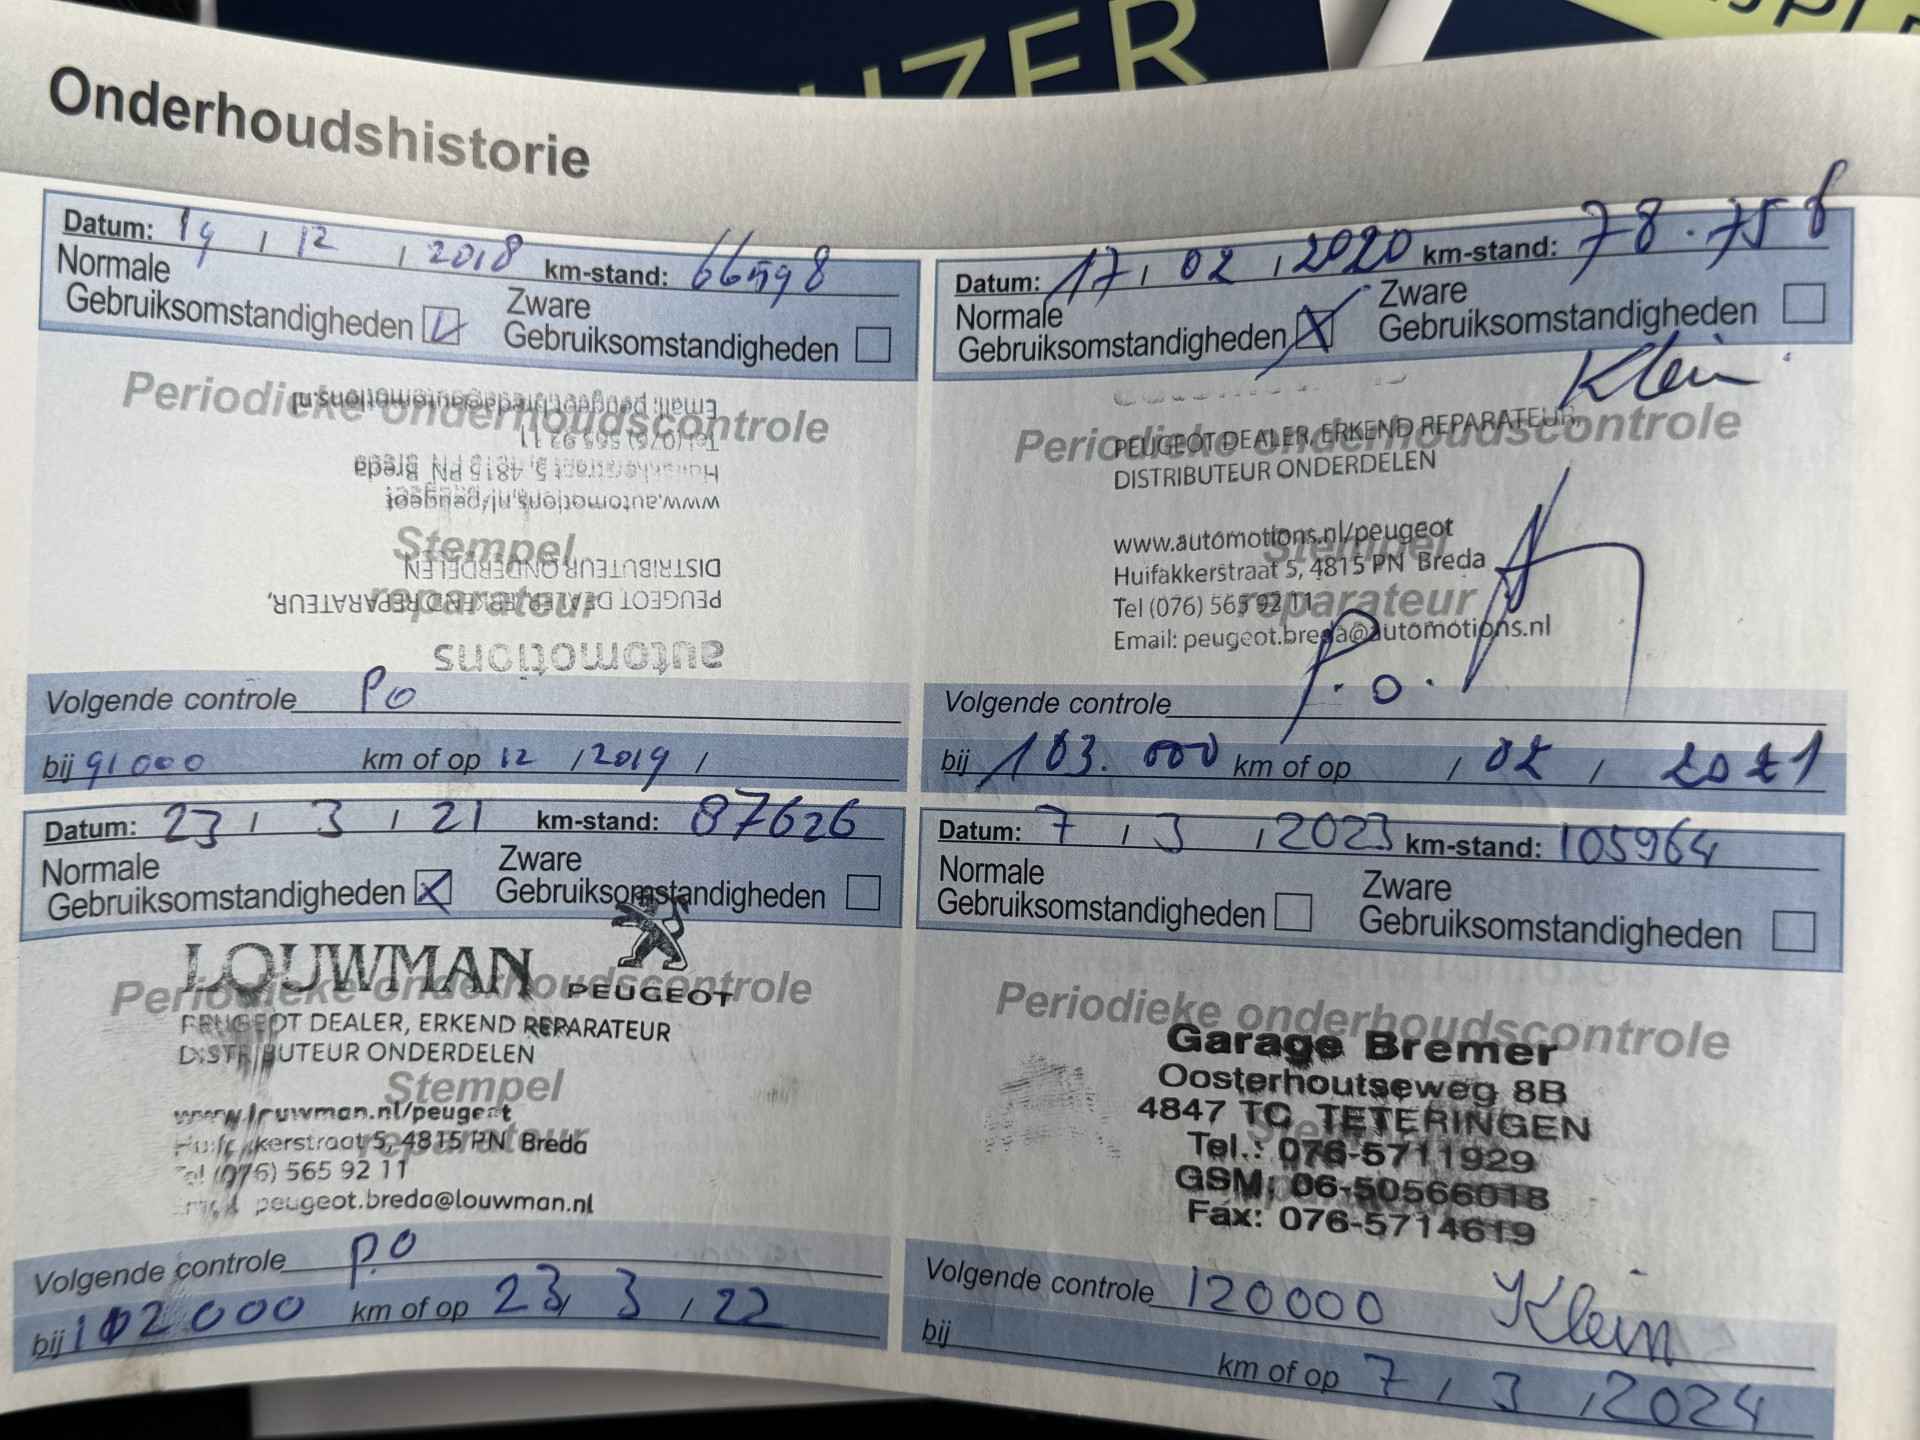 UZER
Onderhoudshistorie
Datum: 19 / 12 / 2018 km-stand: 66598
Normale
Gebruiksomstandigheden
Zware
Gebruiksomstandigheden
Periodieke onderhoudscontrole
Stempel
reparateur
automotions
PEUGEOT DEALER, ERKEND REPARATEUR,
DISTRIBUTEUR ONDERDELEN
www.automotions.nl/peugeot
Huifakkerstraat 5, 4815 PN Breda
Tel (076) 565 92 11
Email: peugeot.breda@automotions.nl
Volgende controle PO
bij 91000 km of op 12 / 2019 /
Datum: 17 / 02 / 2020 km-stand: 78.758
Normale
Gebruiksomstandigheden X
Zware
Gebruiksomstandigheden
Klein
Periodieke onderhoudscontrole
Stempel
reparateur
PEUGEOT DEALER, ERKEND REPARATEUR,
DISTRIBUTEUR ONDERDELEN
www.automotions.nl/peugeot
Huifakkerstraat 5, 4815 PN Breda
Tel (076) 565 92 11
Email: peugeot.breda@automotions.nl
Volgende controle p.o.
bij 103.000 km of op / 02 / 2021
Datum: 23 / 3 / 21 km-stand: 87626
Normale
Gebruiksomstandigheden X
Zware
Gebruiksomstandigheden
Periodieke onderhoudscontrole
Stempel
reparateur
LOUWMAN PEUGEOT
PEUGEOT DEALER, ERKEND REPARATEUR
DISTRIBUTEUR ONDERDELEN
www.louwman.nl/peugeot
Huifakkerstraat 5, 4815 PN Breda
Tel (076) 565 92 11
Email peugeot.breda@louwman.nl
Volgende controle P.O
bij 102000 km of op 23 / 3 / 22
Datum: 7 / 3 / 2023 km-stand: 105964
Normale
Gebruiksomstandigheden
Zware
Gebruiksomstandigheden
Periodieke onderhoudscontrole
Garage Bremer
Oosterhoutseweg 8B
4847 TC TETERINGEN
Tel.: 076-5711929
GSM: 06-50566018
Fax: 076-5714619
Volgende controle 120000 Klein
bij
km of op 7 / 3 / 2024